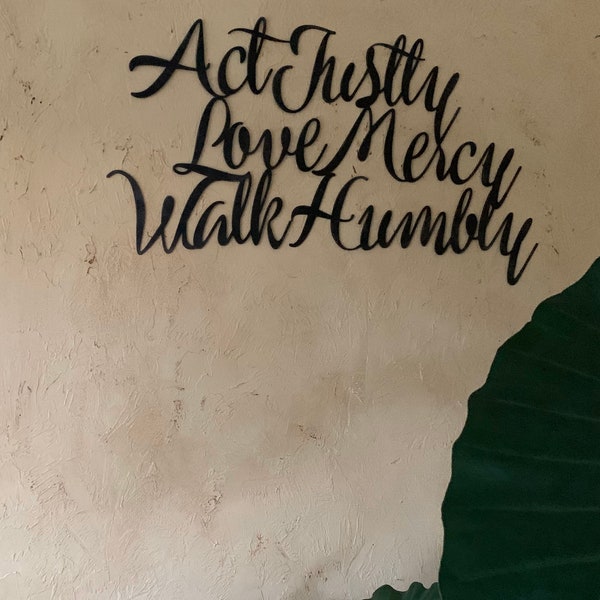 Act Justly
Love Mercy
Walk Humbly